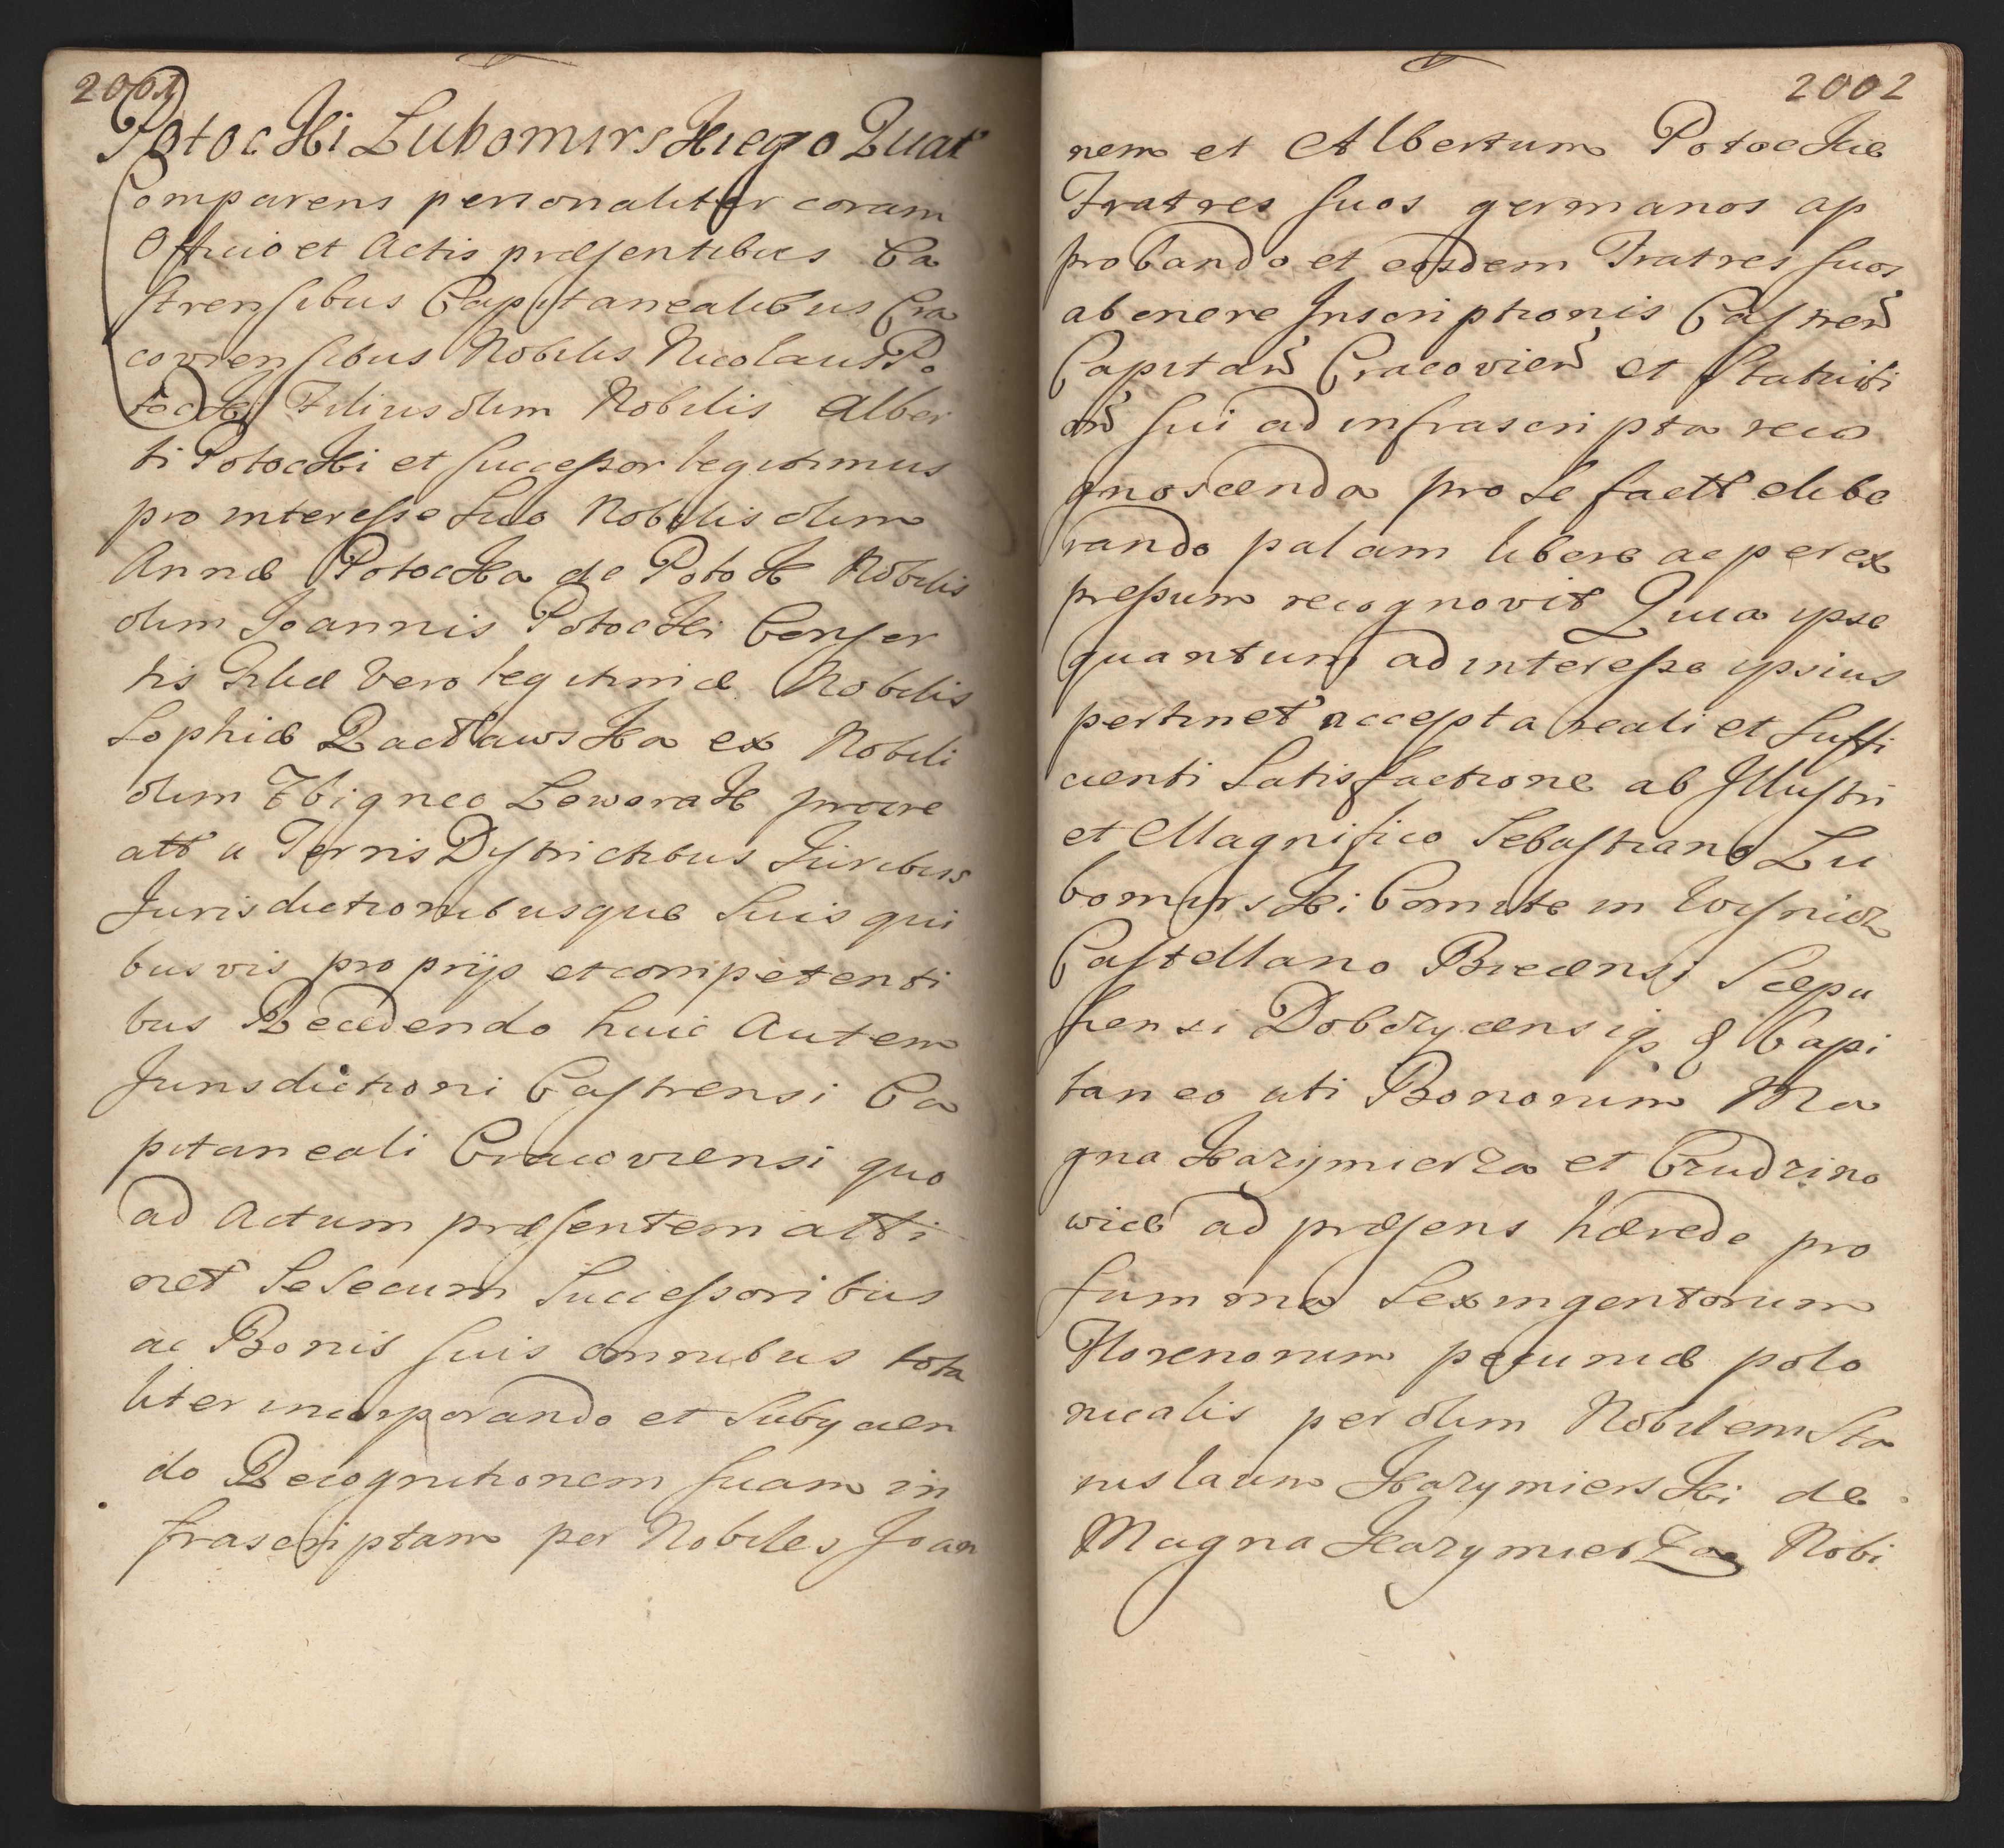 2001
Potocki Lubomirskiego Quat
Comparens personaliter coram
Officio et Actis præsentibus Ca
strensibus Capitanealibus Cra
coviensibus Nobilis Nicolaus Po
tocki Filius olim Nobilis Alber
ti Potocki et Successor legitimus
pro interesse Suo Nobilis olim
Annæ Potocka de Potok Nobilis
olim Joannis Potocki Consor
tis Filiæ Vero legitimæ Nobilis
Sophiæ Ractławska ex Nobili
olim Zbigneo Leworak procre
att a Terris Dystrictibus Juribus
Jurisdictionibusque Suis qui
busvis proprijs et competenti
bus Recedendo huic Autem
Jurisdictioni Castrensi Ca
pitaneali Cracoviensi quo
ad Actum præsentem atti
net Se Secum Successoribus
ac Bonis Suis omnibus tota
liter incorporando et Subycien
do Recognitionem Suam in
frascriptam per Nobiles Joan
2002
nem et Albertum Potockie
Fratres Suos germanos ap
probando et eosdem Fratres Suos
ab onere Inscriptionis Castren
Capitan Cracovien et Statuiti
on Sui ad infrascripta reco
gnoscenda pro Se factt elibe
rando palam libere ac per ex
pressum recognovit Quia ipse
quantum ad interesse ipsius
pertinet accepta reali et Suffi
cienti Satisfactione ab Illustri
et Magnifico Sebastiano Lu
bomirski Comite in Wisnicz
Castellano Biecensi Scepu
siensi Dobczycensiq &c Capi
taneo uti Bonorum Ma
gna Kazymierza et Crudzino
wice ad præsens hærede pro
Summa Sexingentorum
Florenorum pecuniæ polo
nicalis per olim Nobilem Sta
nislaum Kazymierski de
Magna Kazymierza Nobi